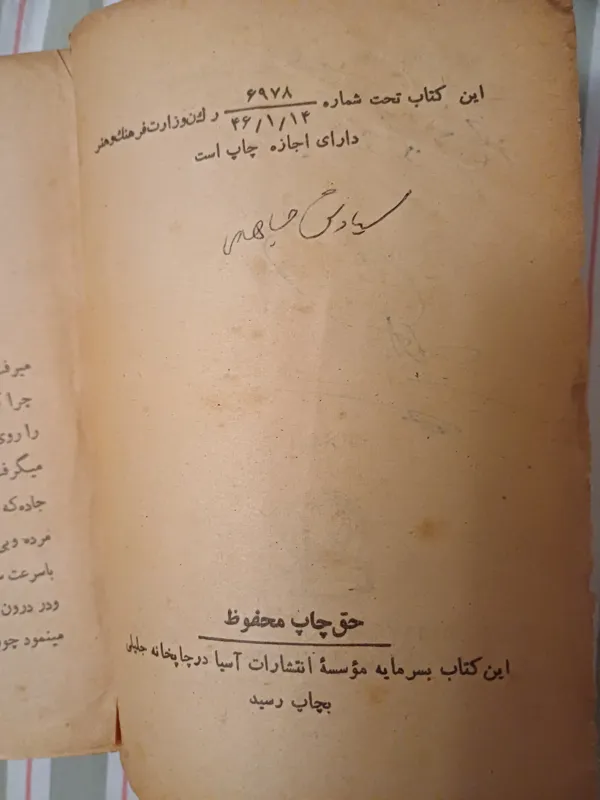 این کتاب تحت شماره ۶۹۷۸ / ۴۶/۱/۱۴ وزارت فرهنگ وهنر
دارای اجازه چاپ است
سیاوش
حق چاپ محفوظ
این کتاب بسرمایه مؤسسهٔ انتشارات آسیا در چاپخانه جلیلی
بچاپ رسید
چرا
را روی
میگرف
جاده که
مرده وبی
باسرعت
ودر درون
مینمود چون